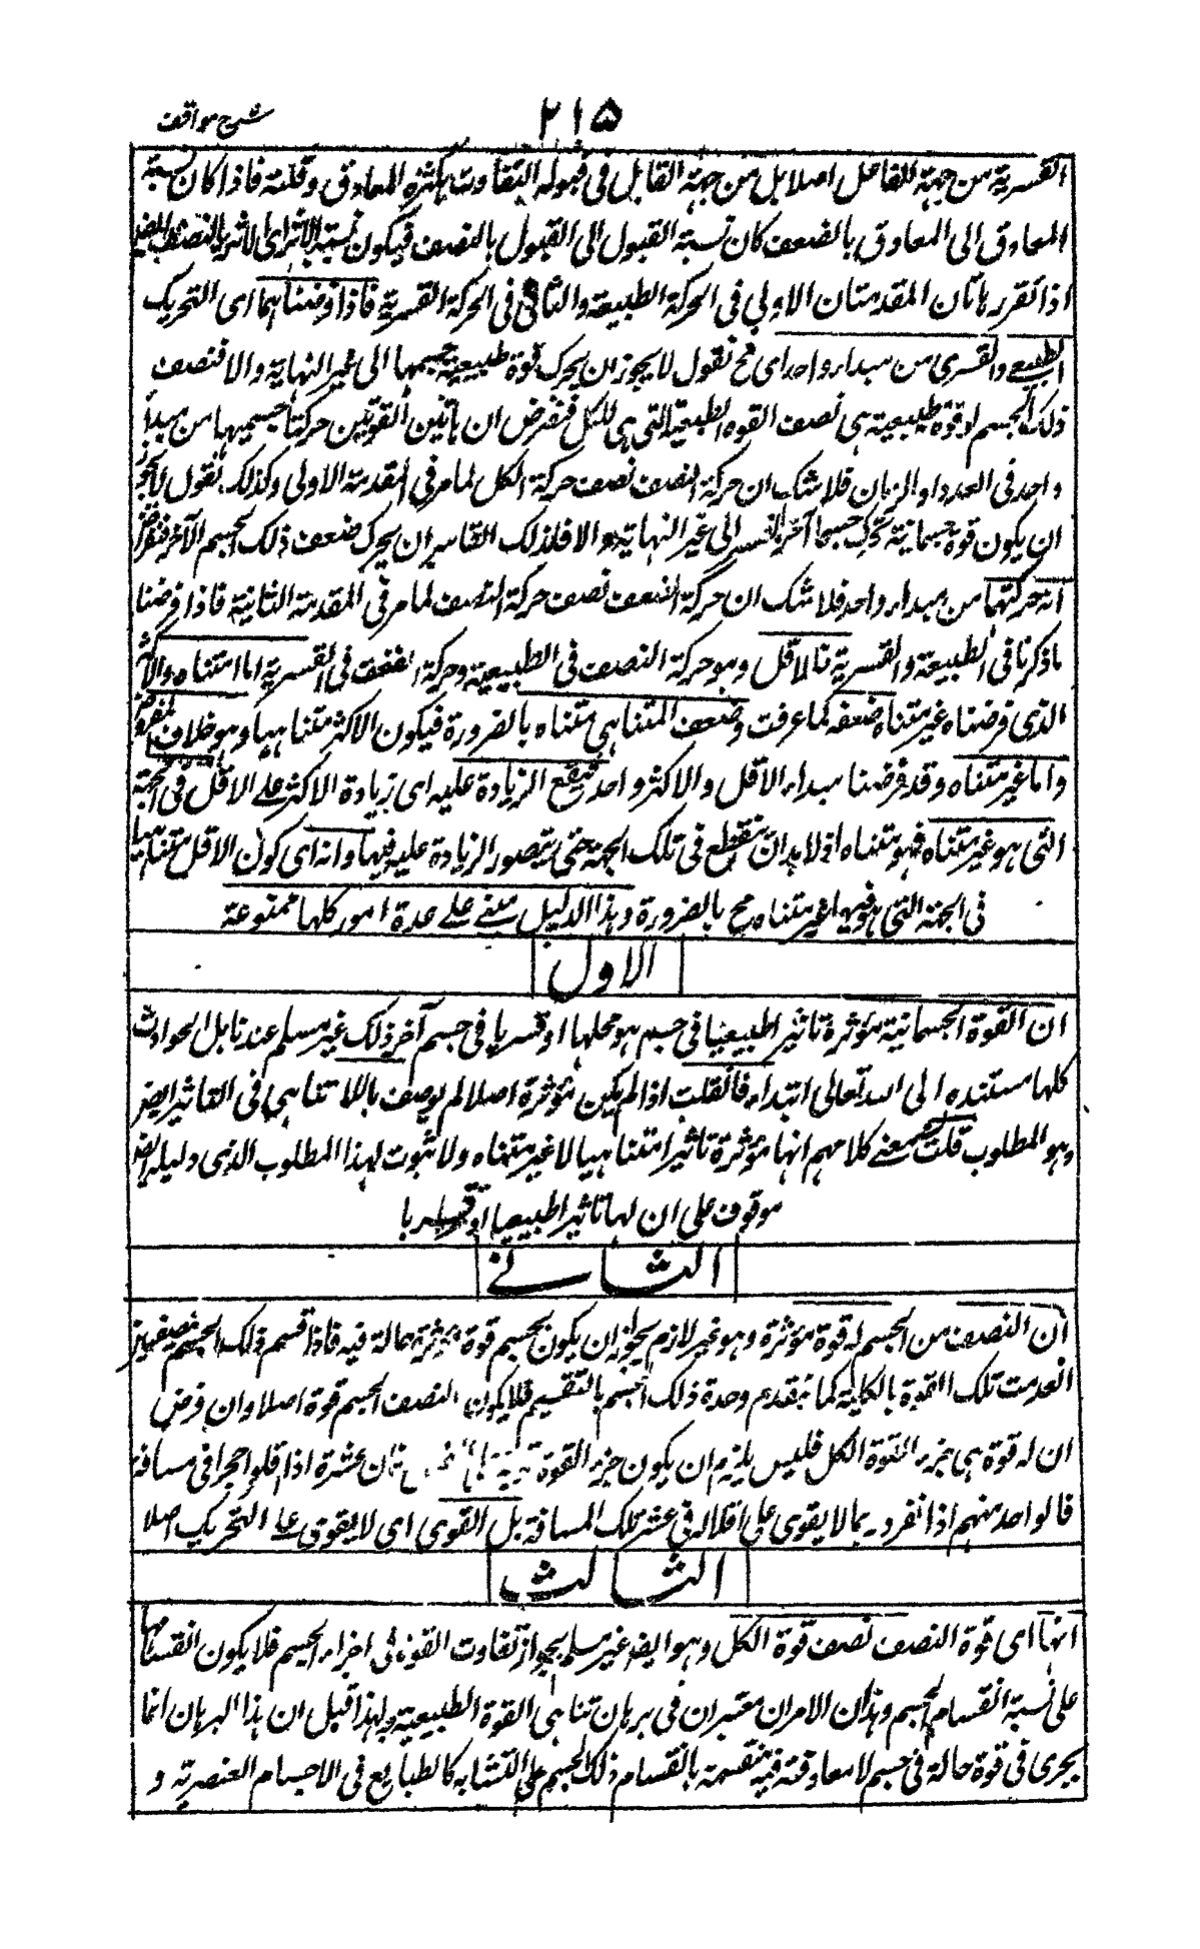 شرح مواقف
۲۱۵
القسرية من جهة الفاعل اصلا بل من جهة القابل فى قبوله التفاوت بكثرة المعاوق وقلته فاذا كان نسبة
المعاوق الى المعاوق بالضعف كان نسبة القبول الى القبول بالنصف فيكون نسبة الاثر الى الاثر بالنصف
اذا تقرر هاتان المقدمتان الاولى فى الحركة الطبيعية والثانى فى الحركة القسرية فاذا فرضناهما اى التحريك
الطبيعے والقسرى من مبداء واحد اى مح نقول لا يجوز ان يحرك قوة طبيعية جسمها الى غير النهاية والا فنصف
ذلك الجسم له قوة طبيعية هى نصف القوة الطبيعية التى هى للكل فنفرض ان هاتين القوتين حركتا جسميهما من مبدأ
واحد فى العدد او الزمان فلا شك ان حركة النصف نصف حركة الكل لما مر فى المقدمة الاولى وكذلك نقول لا يجوز
ان يكون قوة جسمانية تحرك جسما آخر بالقسر الى غير النهاية والا فلذلك القاسر ان يحرك ضعف ذلك الجسم الآخر فنفرض
انه حركهما من مبداء واحد فلا شك ان حركة الضعف نصف حركة النصف لما مر فى المقدمة الثانية فاذا فرضنا
ما ذكرنا فى الطبيعية والقسرية فالاقل وهو حركة النصف فى الطبيعية وحركة الضعف فى القسرية اما متناه والاكثر
الذى فرضناه غير متناه ضعفه كما عرفت وضعف المتناهى متناه بالضرورة فيكون الاكثر متناهيا وهو خلاف المفروض
واما غير متناه وقد فرضنا مبداء الاقل والاكثر واحد فيقع الزيادة عليه اى زيادة الاكثر علے الاقل فى الجهة
التى هو غير متناه فهو متناه اذ لا بد ان ينقطع فى تلك الجهة حتى يتصور الزيادة عليه فيها وانه اى كون الاقل متناهيا
فى الجهة التى هو فيها غير متناه مح بالضرورة وهذا الدليل مبنے علے عدة امور كلها ممنوعة
الاول
ان القوة الجسمانية مؤثرة تاثيرا طبيعيا فى جسم هو محلها او قسريا فى جسم آخر ذلك غير مسلم عندنا بل الحوادث
كلها مستندة الى الله تعالى ابتداء فانقلت اذا لم يكن مؤثرة اصلا لم يوصف باللاتناهى فى التاثير ايضا
وهو المطلوب قلت معنے كلامهم انها مؤثرة تاثيرا متناهيا لا غير متناه ولا ثبوت لهذا المطلوب الذى دليله
موقوف على ان لها تاثيرا طبيعيا او قسريا
الثانے
ان النصف من الجسم له قوة مؤثرة وهو غير لازم يجوز ان يكون لجسم قوة مؤثرة حالة فيه فاذا قسم ذلك الجسم نصفين
انعدمت تلك القوة بالكلية كما ينعدم وحدة ذلك الجسم بالتقسيم فلا يكون لنصف الجسم قوة اصلا وان فرض
ان له قوة هى جزء القوة الكل فليس يلزم ان يكون جزء القوة فان عشرة اذا اقلوا حجرا فى مسافة
فالواحد منهم اذا انفرد ربما لا يقوى على اقلاله فى عشر تلك المسافة بل القوى اى لا يقوى علے التحريك اصلا
الثالث
انها اى قوة النصف نصف قوة الكل وهو ايضا غير مسلم بجواز تفاوت القوة فى اجزاء الجسم فلا يكون انقسامها
على نسبة انقسام الجسم وهذان الامران معتبران فى برهان تناهى القوة الطبيعية ولهذا قيل ان هذا البرهان انما
يجرى فى قوة حالة فى جسم لا معاوقة فيه منقسمة بانقسام ذلك الجسم على التشابه كالطبايع فى الاجسام العنصرية و